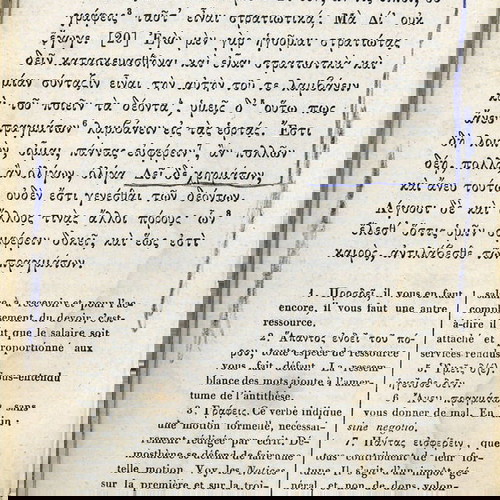 γράφεις ³ ταῦτ’ εἶναι στρατιωτικά; Μὰ Δί’ οὐκ
ἔγωγε. [20] Ἐγὼ μὲν γὰρ ἡγοῦμαι στρατιώτας
δεῖν κατασκευασθῆναι καὶ εἶναι στρατιωτικὰ καὶ
μίαν σύνταξιν εἶναι τὴν αὐτὴν τοῦ τε λαμβάνειν
καὶ τοῦ ποιεῖν τὰ δέοντα, ὑμεῖς δ’ ⁵ οὕτω πως
ἄνευ πραγμάτων ⁶ λαμβάνειν εἰς τὰς ἑορτάς. Ἔστι
δὴ λοιπόν, οἶμαι, πάντας εἰσφέρειν ⁷, ἂν πολλῶν
δέῃ, πολλά,
ἂν ὀλίγων, ὀλίγα. Δεῖ δὲ χρημάτων,
καὶ ἄνευ τούτων
οὐδὲν ἔστι γενέσθαι τῶν δεόντων.
Λέγουσι δὲ καὶ
ἄλλους τινὰς ἄλλοι πόρους, ὧν ⁸
ἕλεσθε ὅστις ὑμῖν
συμφέρειν δοκεῖ, καὶ ἕως ἐστὶ
καιρός, ἀντιλάβεσθε τῶν
πραγμάτων.
1. Προσδεῖ, il vous en faut
encore, il vous faut une autre
ressource.
2. Ἅπαντος ἐνδεῖ τοῦ πό-
ρου, toute espèce de ressource
vous fait défaut. La ressem-
blance des mots ajoute à l’amer-
tume de l’antithèse.
3. Γράφεις. Ce verbe indique
une motion formelle, nécessai-
rement rédigée par écrit. Dé-
mosthène se défend de faire une
telle motion. Voy. les Notices
sur la première et sur la troi-
salaire à recevoir et pour l’ac-
complissement du devoir, c’est-
à-dire il faut que le salaire soit
attaché et proportionné aux
services rendus
5. Ὑμεῖς δ(έ)
sous-entendu
6. Ἄνευ πραγμάτων
vous donner de mal. En
sine negotio.
7. Πάντας εἰσφέρειν, que
tous contribuent de leur for-
tune. Il s’agit d’un impôt gé-
néral et non de dons volon-